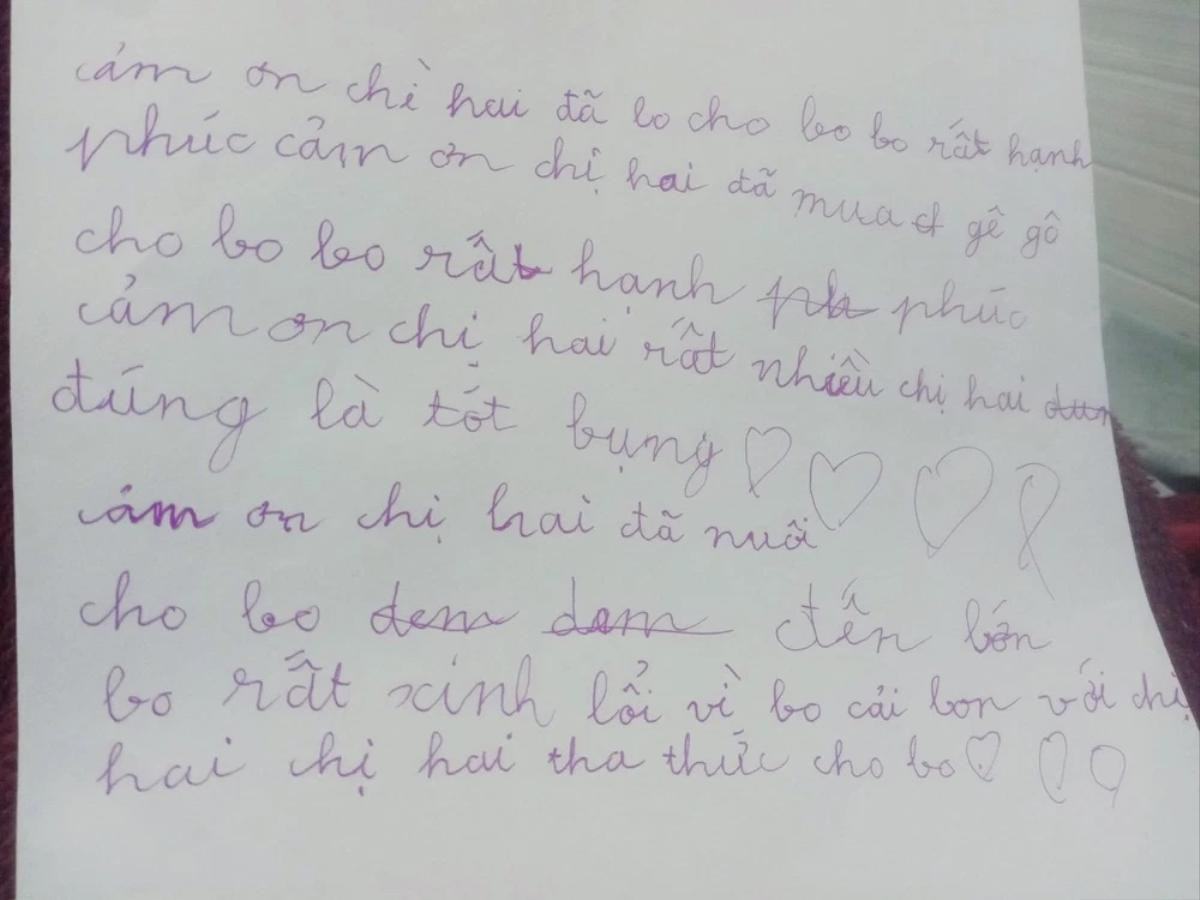 cảm ơn chỉ hai đã lo cho bo bo rất hạnh
phúc cảm ơn chị hai đã mua gê gô
cho bo bo rất hạnh ph phúc
cảm ơn chị hai rất nhiều chị hai dun
đúng là tốt bụng ♡ ♡ ♡
cảm ơn chị hai đã nuôi
cho bo dem dem đến lớn
bo rất xinh lổi vì bo cải lon với chị
hai chị hai tha thức cho bo ♡